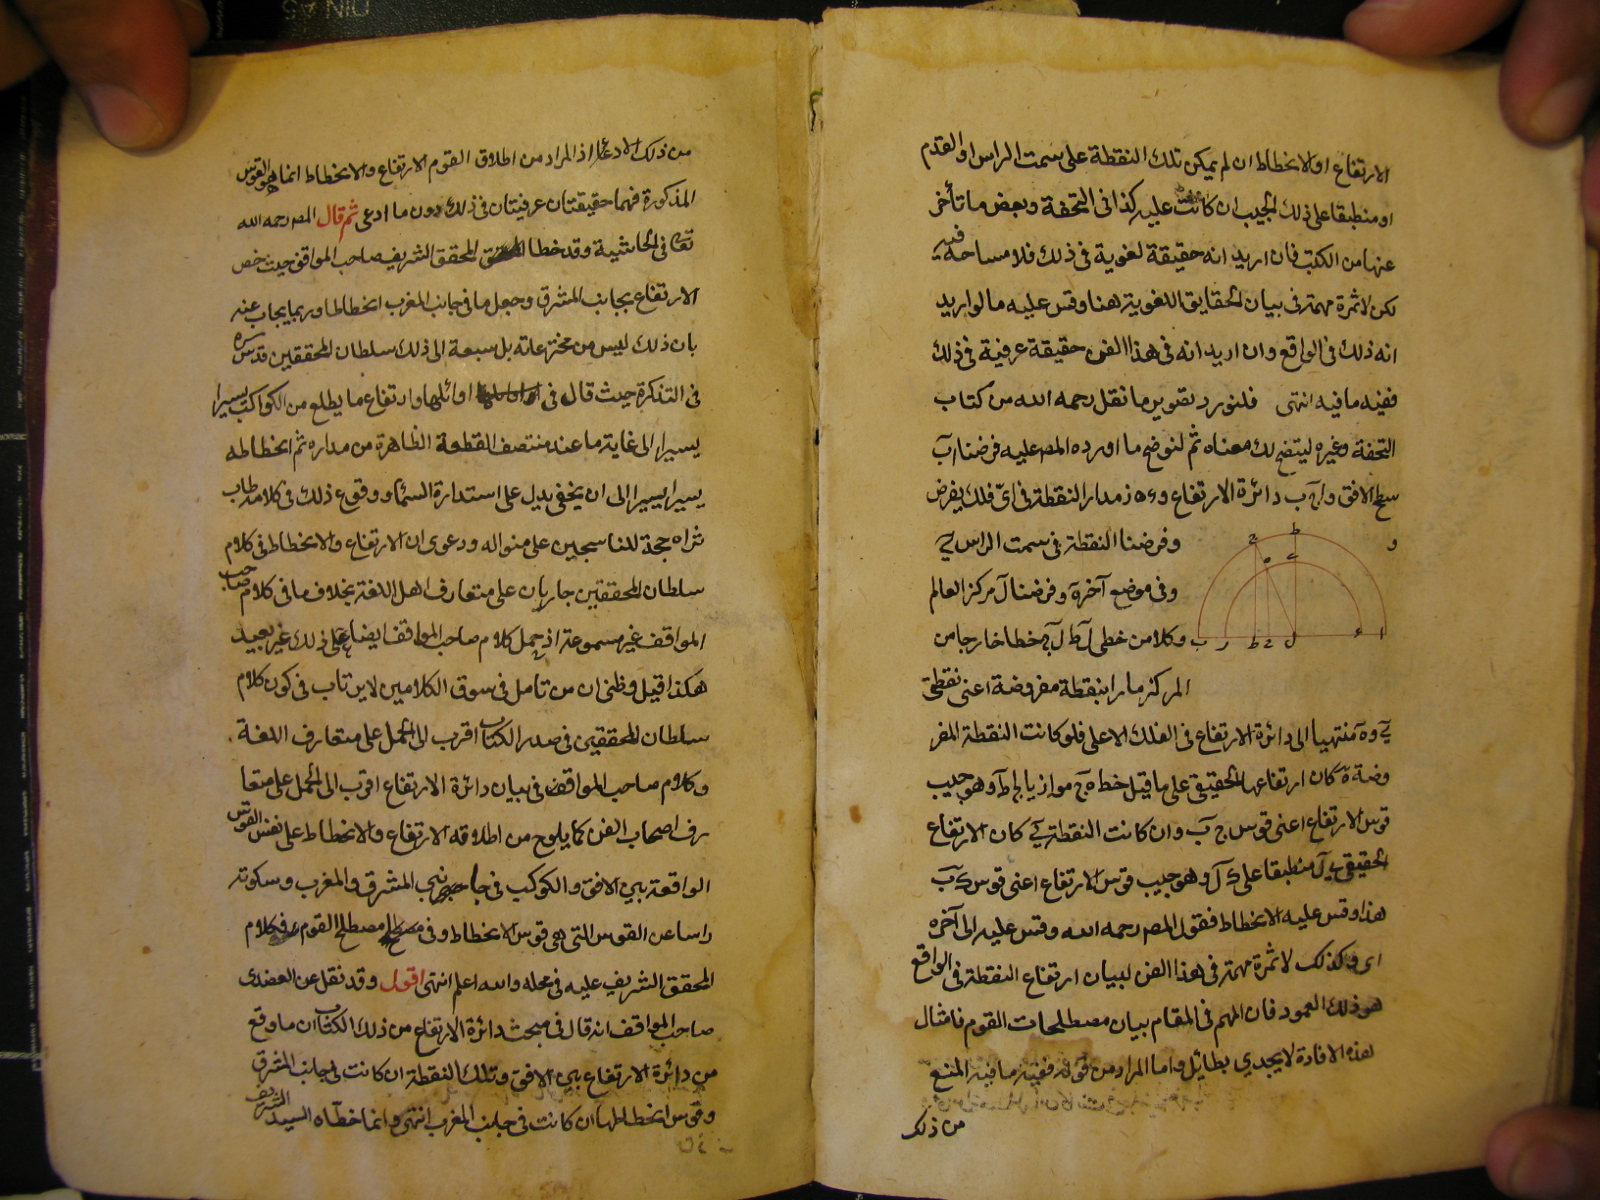 الارتفاع او الانحطاط ان لم يكن تلك النقطة على سمت الراس او القدم
او منطبقا على ذلك الجيب ان كانت عليه كذا فى التحفة وبعض ما تأخر
عنها من الكتب فان اريد انه حقيقة لغوية فى ذلك فلا مساحة فيه
لكن لا ثمرة مهمة فى بيان الحقايق اللغوية هنا وقس عليه ما لو اريد
انه ذلك فى الواقع وان اريد انه فى هذا الفن حقيقة عرفية فى ذلك
ففيه ما فيه انتهى فلنورد تصوير ما نقل رحمه الله من كتاب
التحفة وغيره ليتضح لك معناه ثم لنوضح ما اورده المصـ عليه فرضنا اَبَ
سطح الافق و ب دائرة الارتفاع و ءهز مدار النقطة فى اىّ فلك يفرض
و
وفرضنا النقطة فى سمت الراس ىَ
وفى موضع آخر هَ وفرضنا لَ مركز العالم
وكلا من خطى لَ طَ لَ خطا خارجا من
المركز مارا بنقطة مفروضة اعنى نقطتى
ىَ وهَ منتهيا الى دائرة الارتفاع فى الفلك الاعلى فلو كانت النقطة المفر
وضة هَ كان ارتفاعها الحقيقى على ما قيل خط هَ حَ موازيا لـ وهو جيب
قوس الارتفاع اعنى قوس بَ وان كانت النقطة ىَ كان الارتفاع
الحقيقى ىَ لَ منطبقا على لَ وهو جيب قوس الارتفاع اعنى قوس بَ
هذا وقس عليه الانحطاط فقول المصـ رحمه الله وقس عليه الى آخره
اى وكذلك لا ثمرة مهمة فى هذا الفن لبيان ارتفاع النقطة فى الواقع
هو ذلك العمود فان المهم فى المقام بيان مصطلحات القوم فامثال
هذه الافادة لا يجدي بطائل واما المراد من قوله ففيه ما فيه المنع
من ذلك
من ذلك الادعاء اذ المراد من اطلاق القوم الارتفاع والانحطاط انما هو القوس
المذكورة فهما حقيقتان عرفيتان فى ذلك دون ما ادعى ثم قال المصـ رحمه الله
تعالى فى الحاشية وقد خطا المحقق الشريف صاحب المواقف حيث خص
الارتفاع بجانب المشرق وجعل ما فى جانب المغرب انحطاطا وربما يجاب عنه
بان ذلك ليس من مخترعاته بل سبقه الى ذلك سلطان المحققين قدس سره
فى التذكرة حيث قال فى اوائلها وارتفاع ما يطلع من الكواكب يسيرا
يسيرا الى غاية ما عند منتصف القطعة الظاهرة من مداره ثم انحطاطه
يسيرا يسيرا الى ان يخفى يدل على استدارة السماء ووقوع ذلك فى كلامه طاب
ثراه حجة للناسجين على منواله ودعوى ان الارتفاع والانحطاط فى كلام
سلطان المحققين جاريان على متعارف اهل اللغة بخلاف ما فى كلام صاحب
المواقف غير مسموعة اذ حمل كلام صاحب المواقف ايضا على ذلك غير بعيد
هكذا قيل وظنى ان من تامل فى سوق الكلامين لا يرتاب فى كون كلام
سلطان المحققين فى صدر الكتاب اقرب الى الحمل على متعارف اللغة
وكلام صاحب المواقف فى بيان دائرة الارتفاع اقرب الى الحمل على متعا
رف اصحاب الفن كما يلوح من اطلاقه الارتفاع والانحطاط على نفس القوس
الواقعة بين الافق والكوكب فى جانبى المشرق والمغرب وسكوته
راسا عن القوس التى هى قوس الانحطاط وفى مصطلح القوم فكلام
المحقق الشريف عليه فى محله والله اعلم انتهى اقول وقد نقل عن العضدى
صاحب المواقف انه قال فى مبحث دائرة الارتفاع من ذلك الكتاب ان ما وقع
من دائرة الارتفاع بين الافق وتلك النقطة ان كانت فى جانب المشرق
وقوس انحطاطها ان كانت فى جانب المغرب انتهى وانما خطّاه السيد الشريف